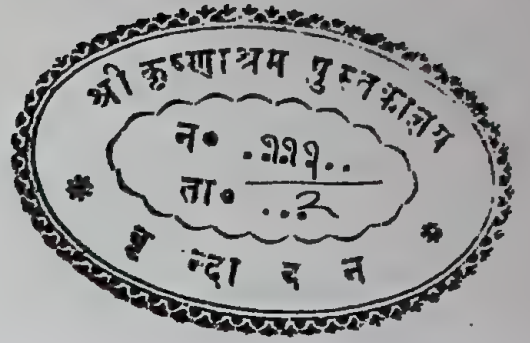 श्री कृष्णाश्रम पुस्तकालय
न० ..999..
ता० ...2
वृन्दावन